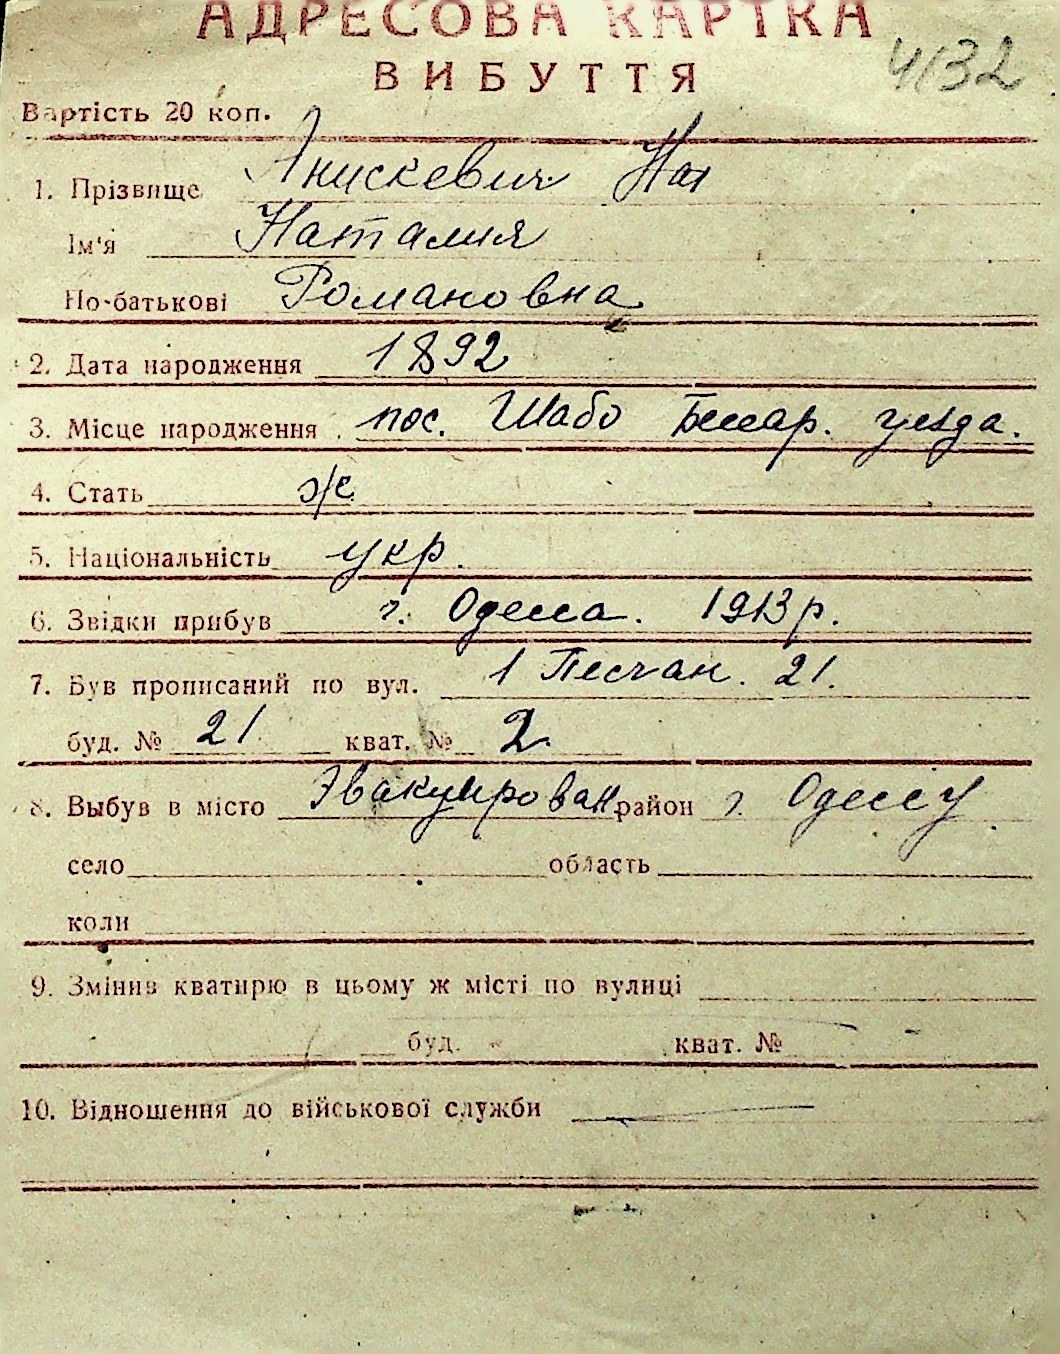 АДРЕСОВА КАРТКА
ВИБУТТЯ
4132
Вартість 20 коп.
1. Прізвище Анискевич Нат
Ім'я Наталия
По-батькові Романовна
2. Дата народження 1892
3. Місце народження пос. Шабо Бессар. уезда.
4. Стать ж
5. Національність укр.
6. Звідки прибув г. Одесса. 1913 р.
7. Був прописаний по вул. 1 Песчан. 21.
буд. № 21 кват. № 2.
8. Выбув в місто Эвакуирован район г. Одессу
село область
коли
9. Змінив квартирю в цьому ж місті по вулиці
буд. кват. №
10. Відношення до військової служби